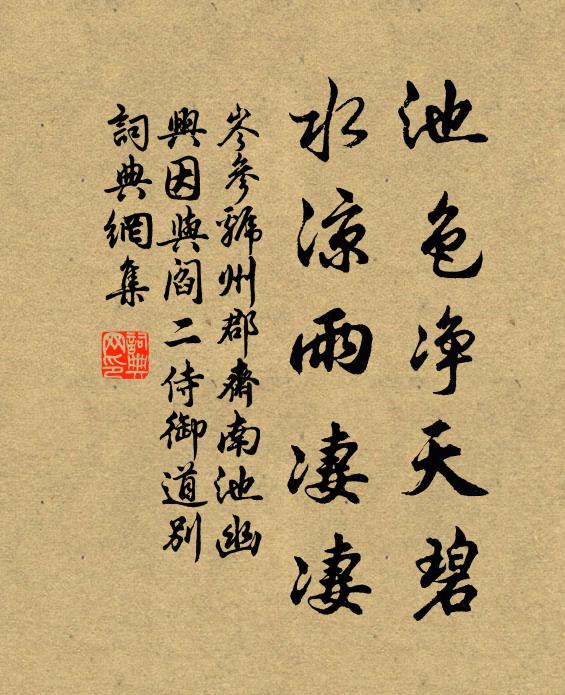 池色净天碧
水凉雨凄凄
岑參虢州郡齋南池幽
興因與閻二侍御道別
詞典網集
詞典网印